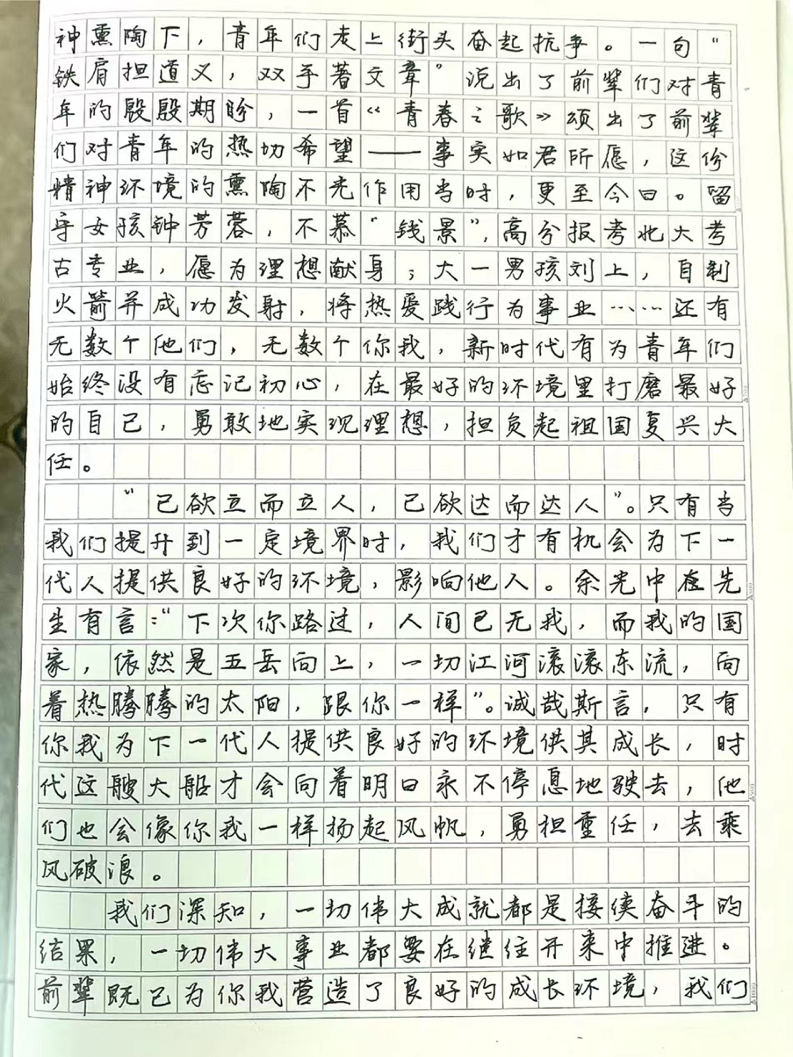 神熏陶下，青年们走上街头奋起抗争。一句“
铁肩担道义，双手著文章”说出了前辈们对青
年的殷殷期盼，一首《青春之歌》颂出了前辈
们对青年的热切希望——事实如君所愿，这份
精神环境的熏陶不光作用当时，更至今日。留
守女孩钟芳蓉，不慕“钱景”，高分报考北大考
古专业，愿为理想献身；大一男孩刘上，自制
火箭并成功发射，将热爱践行为事业……还有
无数个他们，无数个你我，新时代有为青年们
始终没有忘记初心，在最好的环境里打磨最好
的自己，勇敢地实现理想，担负起祖国复兴大
任。
“已欲立而立人，已欲达而达人”。只有当
我们提升到一定境界时，我们才有机会为下一
代人提供良好的环境，影响他人。余光中在先
生有言：“下次你路过，人间已无我，而我的国
家，依然是五岳向上，一切江河滚滚东流，向
着热腾腾的太阳，跟你一样”。诚哉斯言，只有
你我为下一代人提供良好的环境供其成长，时
代这艘大船才会向着明日永不停息地驶去，他
们也会像你我一样扬起风帆，勇担重任，去乘
风破浪。
我们深知，一切伟大成就都是接续奋斗的
结果，一切伟大事业都要在继往开来中推进。
前辈既已为你我营造了良好的成长环境，我们